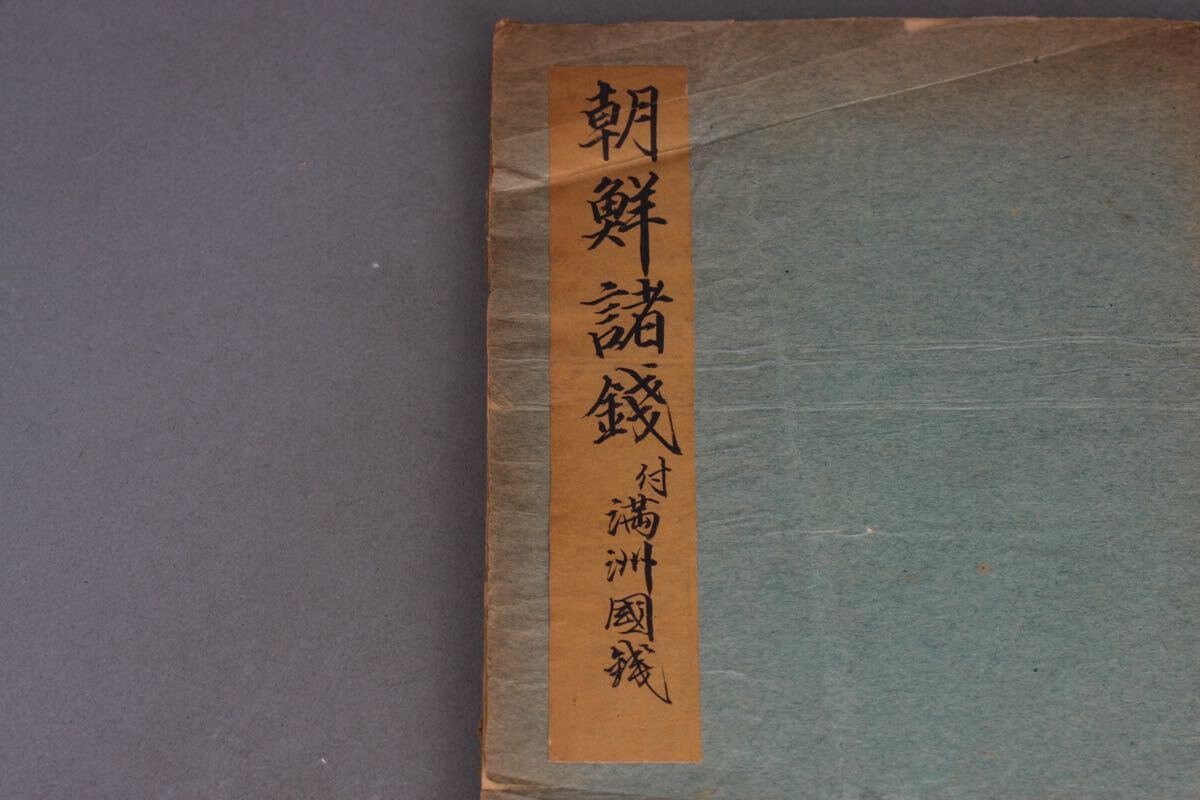 朝鮮諸錢
付満洲國錢